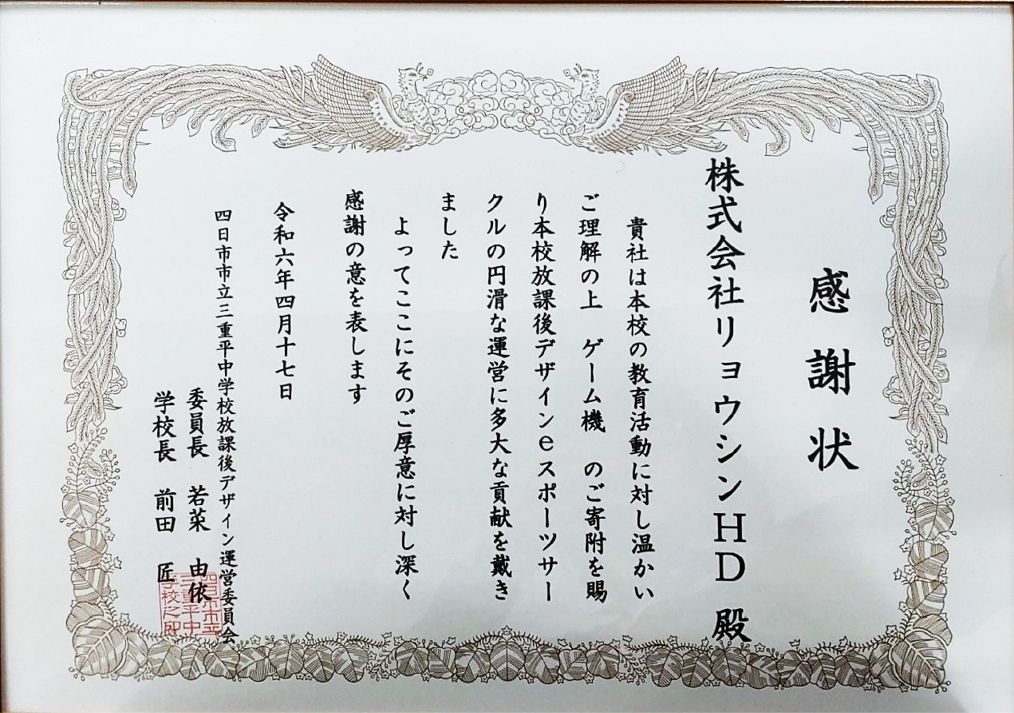 感謝状
株式会社リョウシンHD 殿
貴社は本校の教育活動に対し温かい
ご理解の上 ゲーム機 のご寄附を賜
り本校放課後デザインeスポーツサー
クルの円滑な運営に多大な貢献を戴き
ました
よってここにそのご厚意に対し深く
感謝の意を表します
令和六年四月十七日
四日市市立三重平中学校放課後デザイン運営委員会
委員長 若菜 由依
学校長 前田 匠
四日市市立
三重平中
学校之印